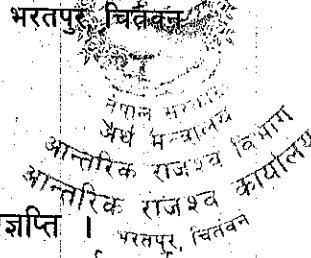 भरतपुर, चितवन
नेपाल सरकार
अर्थ मन्त्रालय
आन्तरिक राजश्व विभाग
आन्तरिक राजश्व कार्यालय
ज्ञप्ति ।
भरतपुर, चितवन